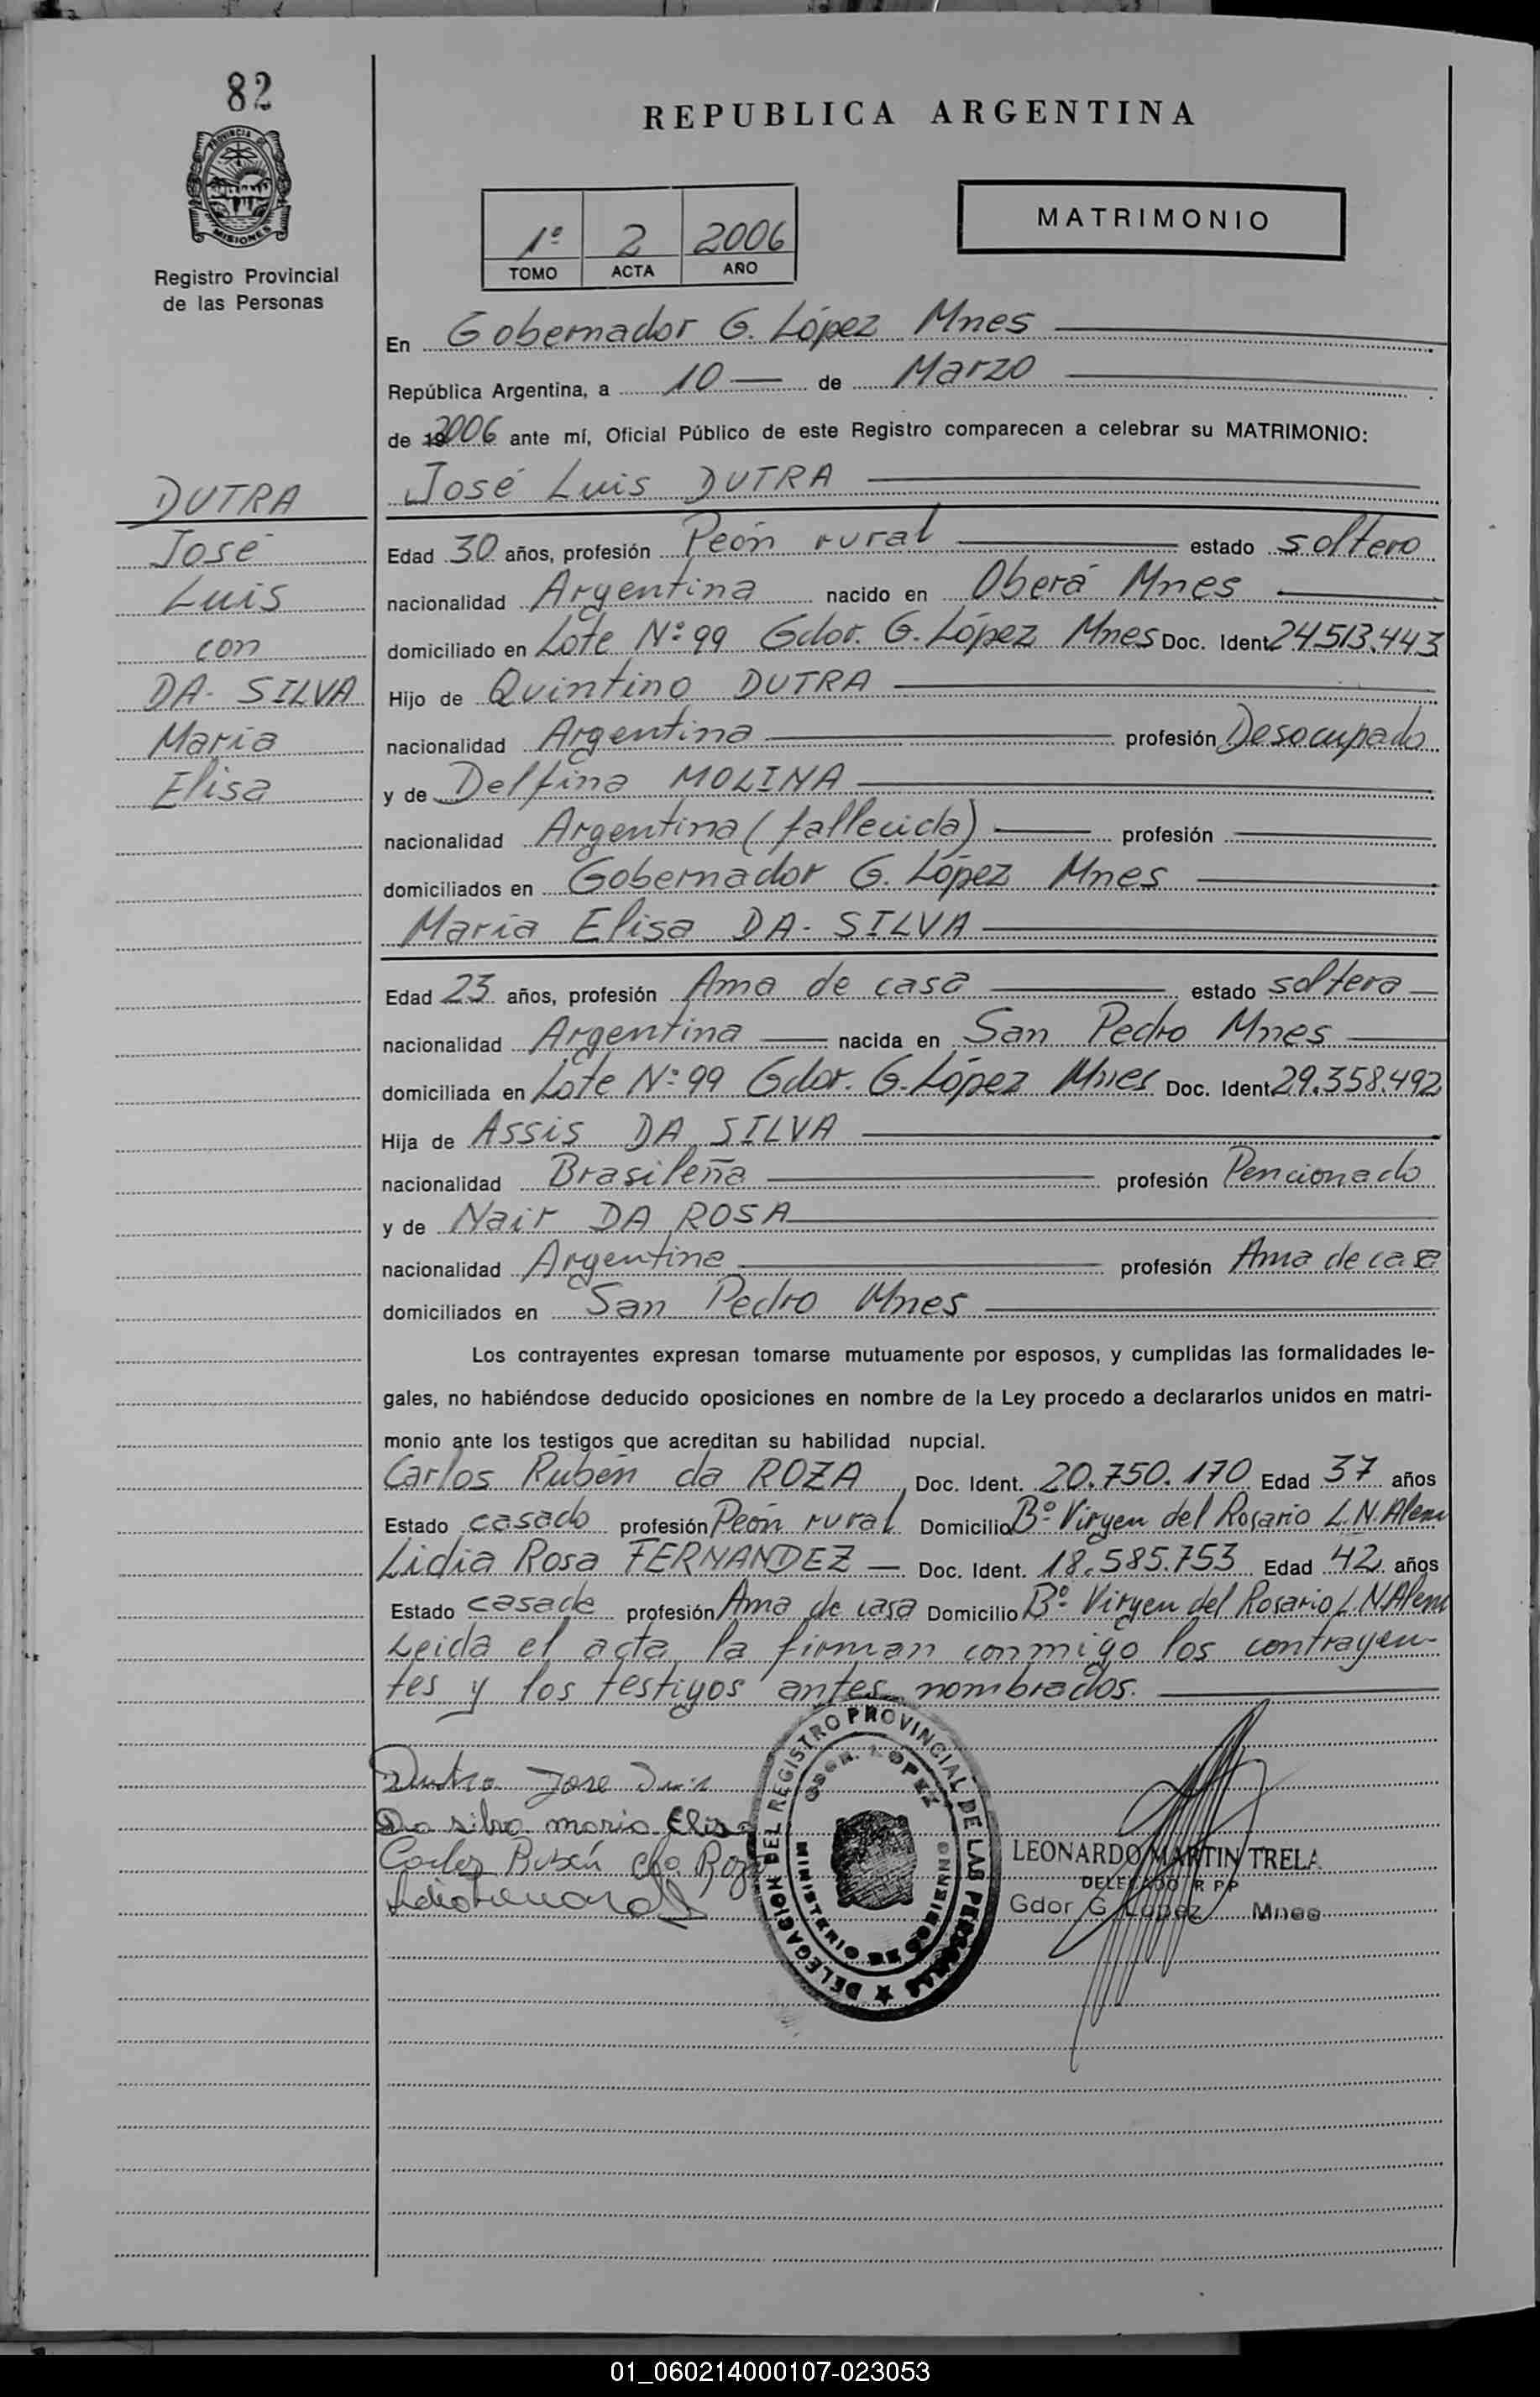 82
PROVINCIA DE
MISIONES
Registro Provincial
de las Personas
REPUBLICA ARGENTINA
1º 2 2006
TOMO ACTA AÑO
MATRIMONIO
En Gobernador G. López Mnes
República Argentina, a 10 de Marzo
de 2006 ante mí, Oficial Público de este Registro comparecen a celebrar su MATRIMONIO:
DUTRA
José
Luis
con
DA- SILVA
María
Elisa
José Luis DUTRA
Edad 30 años, profesión Peón rural estado soltero
nacionalidad Argentina nacido en Oberá Mnes
domiciliado en Lote Nº 99 Gdor. G. López Mnes Doc. Ident. 24.513.443
Hijo de Quintino DUTRA
nacionalidad Argentina profesión Desocupado
y de Delfina MOLINA
nacionalidad Argentina (fallecida) profesión
domiciliados en Gobernador G. López Mnes
María Elisa DA- SILVA
Edad 23 años, profesión Ama de casa estado soltera
nacionalidad Argentina nacida en San Pedro Mnes
domiciliada en Lote Nº 99 Gdor. G. López Mnes Doc. Ident. 29.358.492
Hija de Assis DA SILVA
nacionalidad Brasileña profesión Pencionado
y de Nair DA ROSA
nacionalidad Argentina profesión Ama de casa
domiciliados en San Pedro Mnes
Los contrayentes expresan tomarse mutuamente por esposos, y cumplidas las formalidades le-
gales, no habiéndose deducido oposiciones en nombre de la Ley procedo a declararlos unidos en matri-
monio ante los testigos que acreditan su habilidad nupcial.
Carlos Rubén da ROZA Doc. Ident. 20.750.170 Edad 37 años
Estado casado profesión Peón rural Domicilio Bº Virgen del Rosario L.N.Alem
Lidia Rosa FERNANDEZ Doc. Ident. 18.585.753 Edad 42 años
Estado casada profesión Ama de casa Domicilio Bº Virgen del Rosario L.N.Alem
Leida el acta, la firman conmigo los contrayen-
tes y los testigos antes nombrados.
Dutra Jose Luis
Da silva maria Elisa
Carlos Rubén da Roza
DELEGACION DEL REGISTRO PROVINCIAL DE LAS PERSONAS
GDOR. LOPEZ
MINISTERIO DE GOBIERNO
LEONARDO MARTIN TRELA
DELEGADO R P P
Gdor G Lopez Mnes
01_060214000107-023053